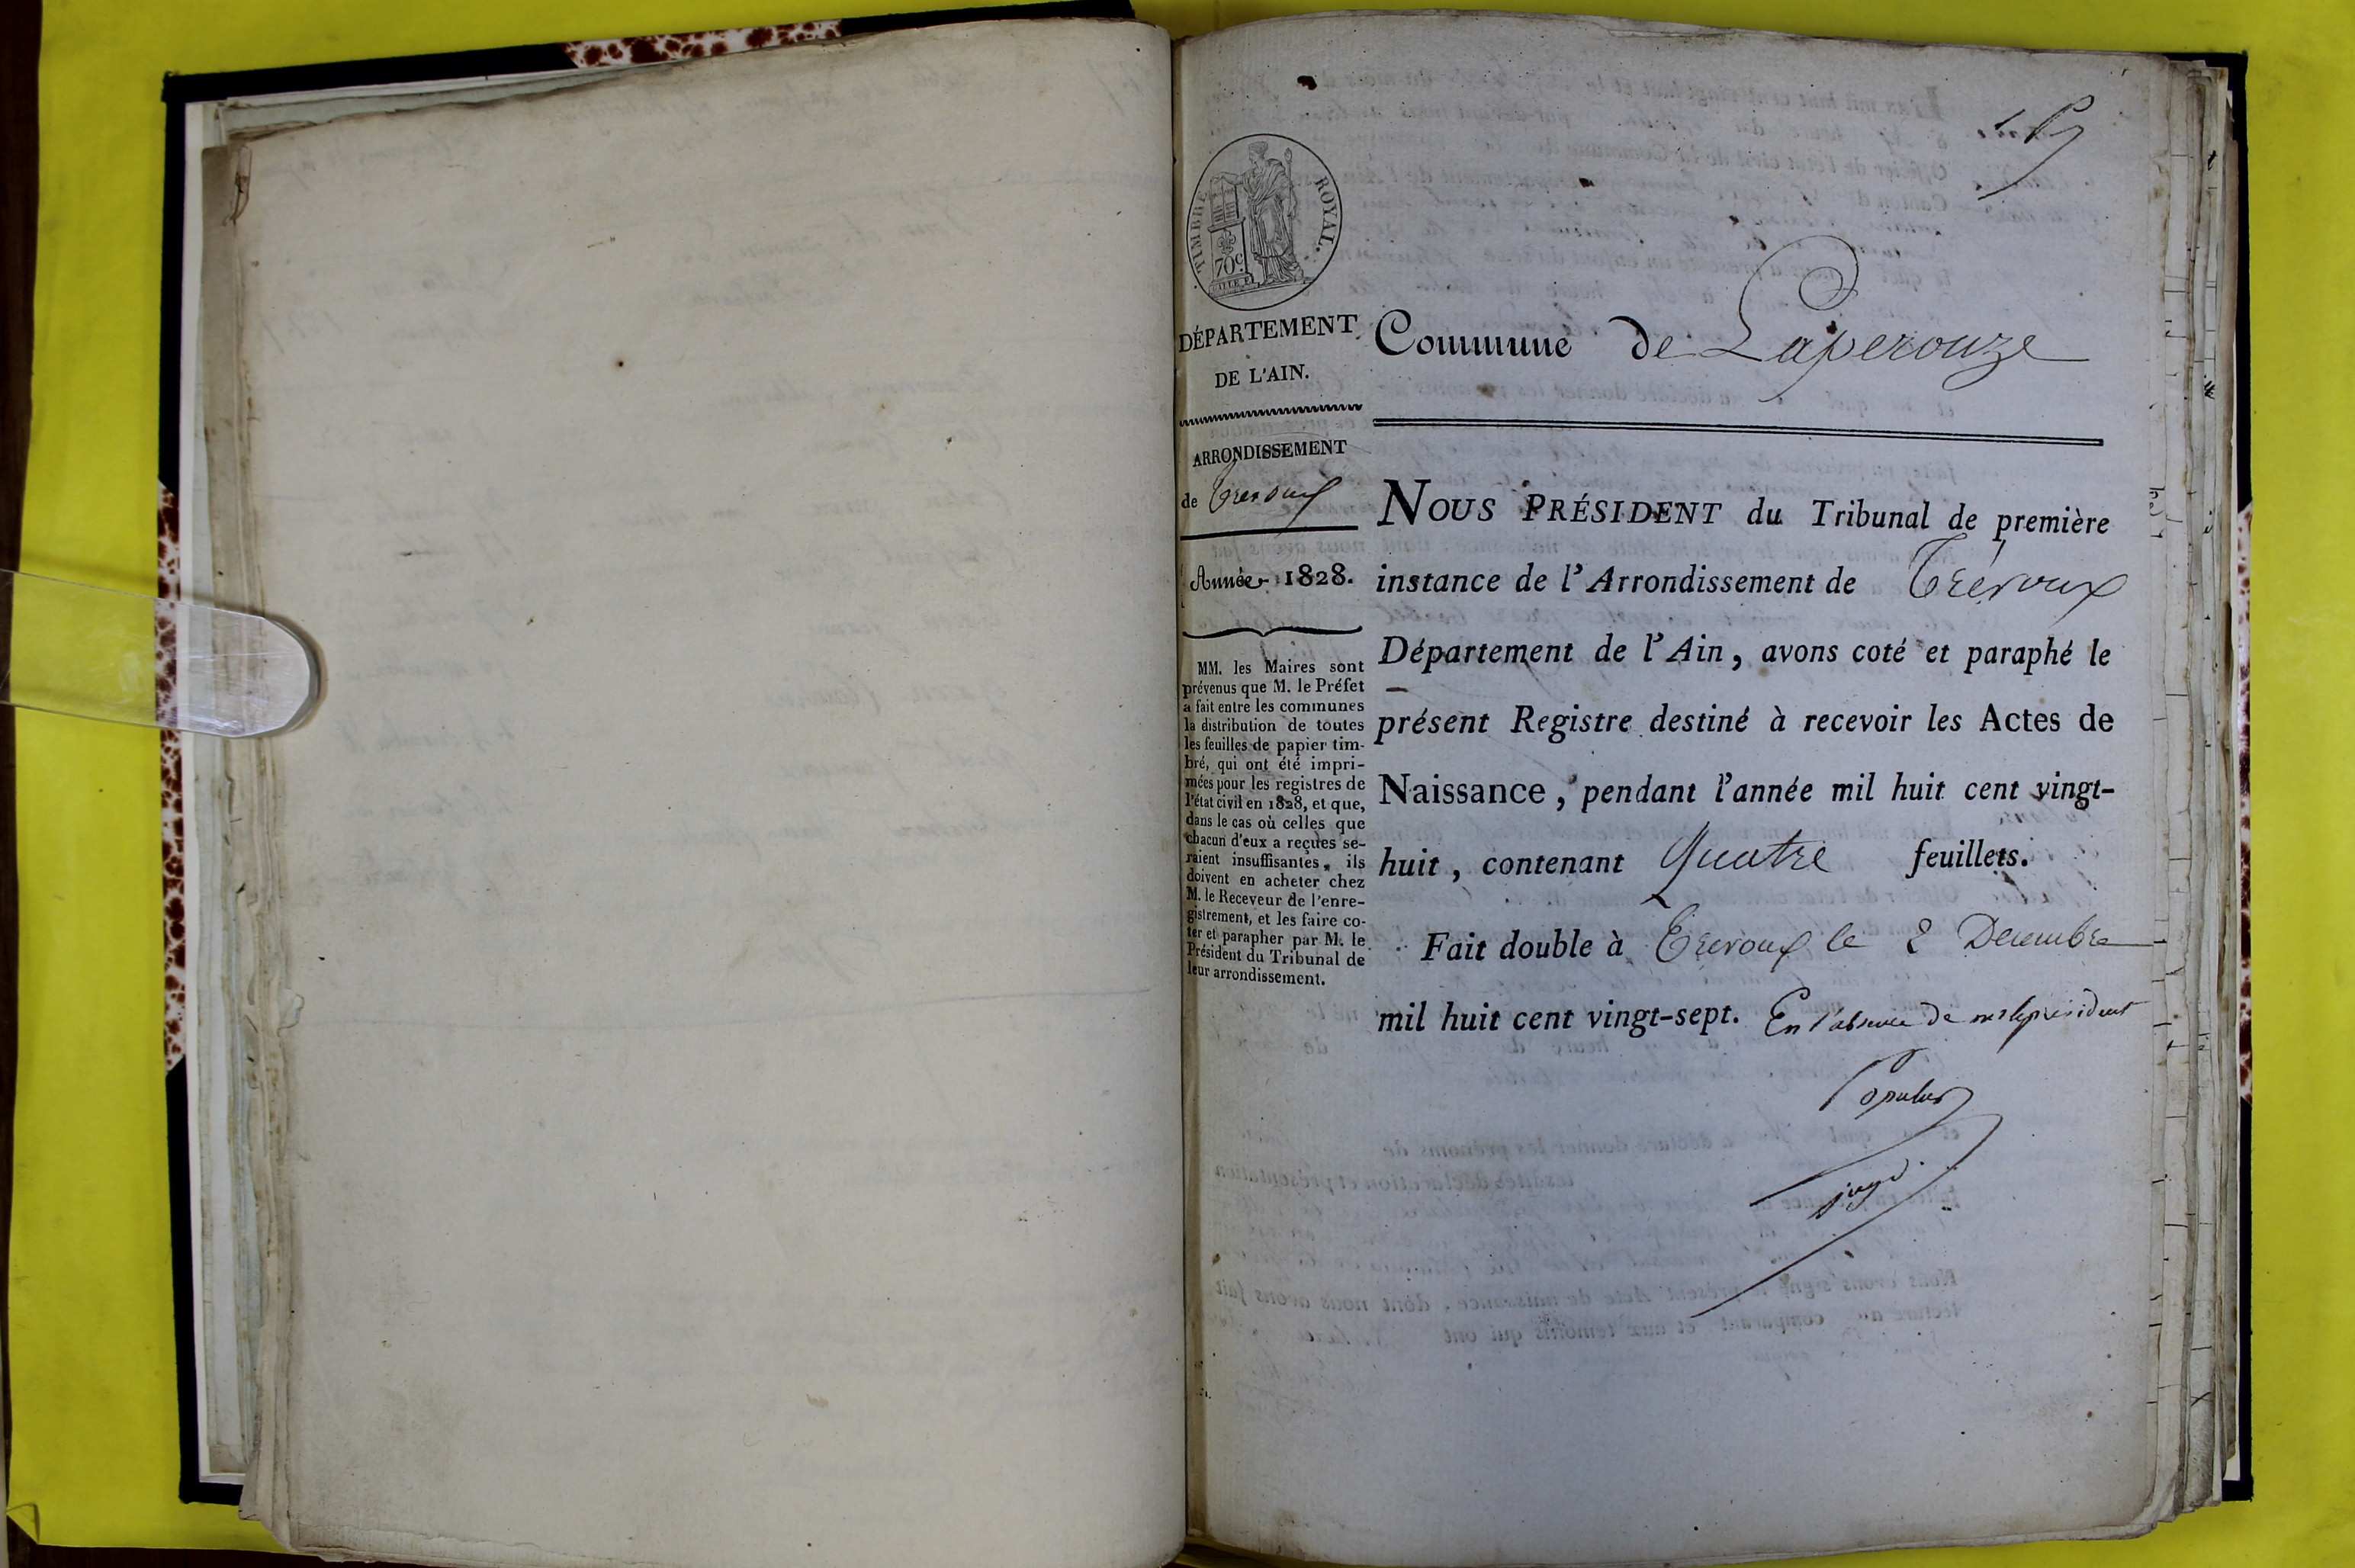 TIMBRE ROYAL.
70c.
DÉPARTEMENT
DE L'AIN.
ARRONDISSEMENT
de Trevoux
Année 1828.
MM. les Maires sont
prévenus que M. le Préfet
a fait entre les communes
la distribution de toutes
les feuilles de papier tim-
bré, qui ont été impri-
mées pour les registres de
l'état civil en 1828, et que,
dans le cas où celles que
chacun d'eux a reçues se-
raient insuffisantes, ils
doivent en acheter chez
M. le Receveur de l'enre-
gistrement, et les faire co-
ter et parapher par M. le
Président du Tribunal de
leur arrondissement.
Commune de Laperouze
NOUS PRÉSIDENT du Tribunal de première
instance de l'Arrondissement de Trévoux
Département de l'Ain, avons coté et paraphé le
présent Registre destiné à recevoir les Actes de
Naissance, pendant l'année mil huit cent vingt-
huit, contenant Quatre feuillets.
Fait double à Trevoux le 2 Decembre
mil huit cent vingt-sept. En l'absence de mr le président
Populus
juge